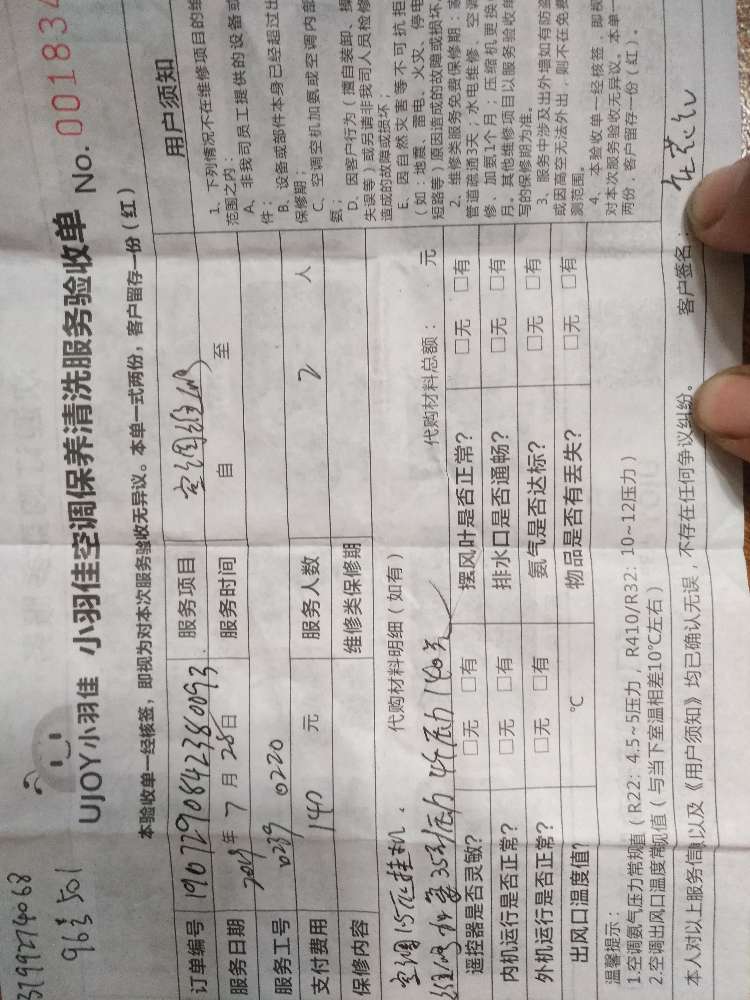 96号 501
UJOY小羽佳 小羽佳空调保养清洗服务验收单 No. 001834
本验收单一经核签，即视为对本次服务验收无异议。本单一式两份，客户留存一份（红）
订单编号 1907290842380093 服务项目 空调维修
服务日期 2019 年 7 月 28 日 服务时间 自 至
服务工号 0239 0220
支付费用 140 元 服务人数 2 人
保修内容 维修类保修期
空调1.5匹挂机. 代购材料明细（如有） 代购材料总额： 元
遥控器是否灵敏？ □无 □有 摆风叶是否正常？ □无 □有
内机运行是否正常？ □无 □有 排水口是否通畅？ □无 □有
外机运行是否正常？ □无 □有 氨气是否达标？ □无 □有
出风口温度值？ ℃ 物品是否有丢失？ □无 □有
用户须知
1、下列情况不在维修项目的维
范围之内：
A、非我司员工提供的设备或
件；
B、设备或部件本身已经超过出
保修期；
C、空调空机加氨或空调内部
氨；
D、因客户行为（擅自装卸、操
失误等）或另请非我司人员检修
造成的故障或损坏；
E、因自然灾害等不可抗拒
（如：地震、雷电、火灾、停电
短路等）原因造成的故障或损坏
2、维修类服务免费保修期：家
管道疏通3天；水电维修、空调
修、加氨1个月；压缩机更换
月。其他维修项目以服务验收单
写的保修期为准。
3、服务中涉及出外墙如有防盗
或因高空无法外出，则不在免费
测范围。
4、本验收单一经核签，即视
对本次服务验收无异议。本单一
两份，客户留存一份（红）。
温馨提示：
1.空调氨气压力常规值（R22：4.5~5压力，R410/R32：10~12压力）
2.空调出风口温度常规值（与当下室温相差10℃左右）
本人对以上服务信息以及《用户须知》均已确认无误，不存在任何争议纠纷。 客户签名：